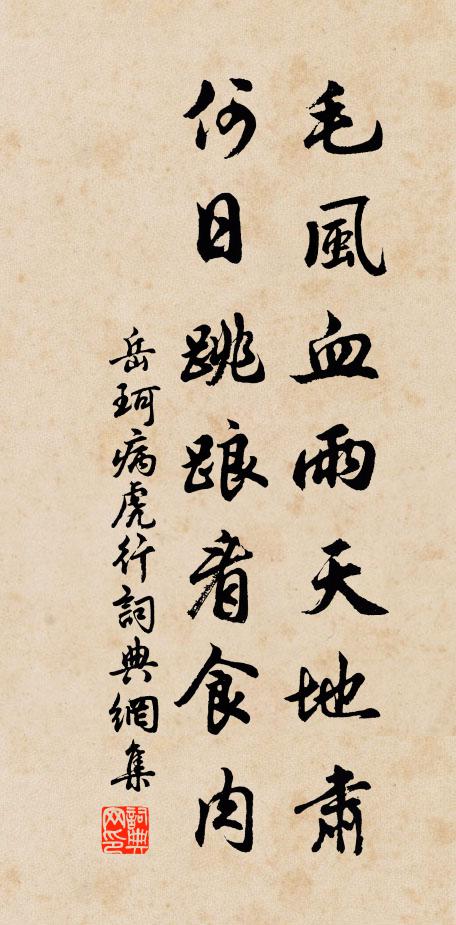 毛風血雨天地肅
何日跳踉看食肉
岳珂病虎行詞典網集
詞典网印